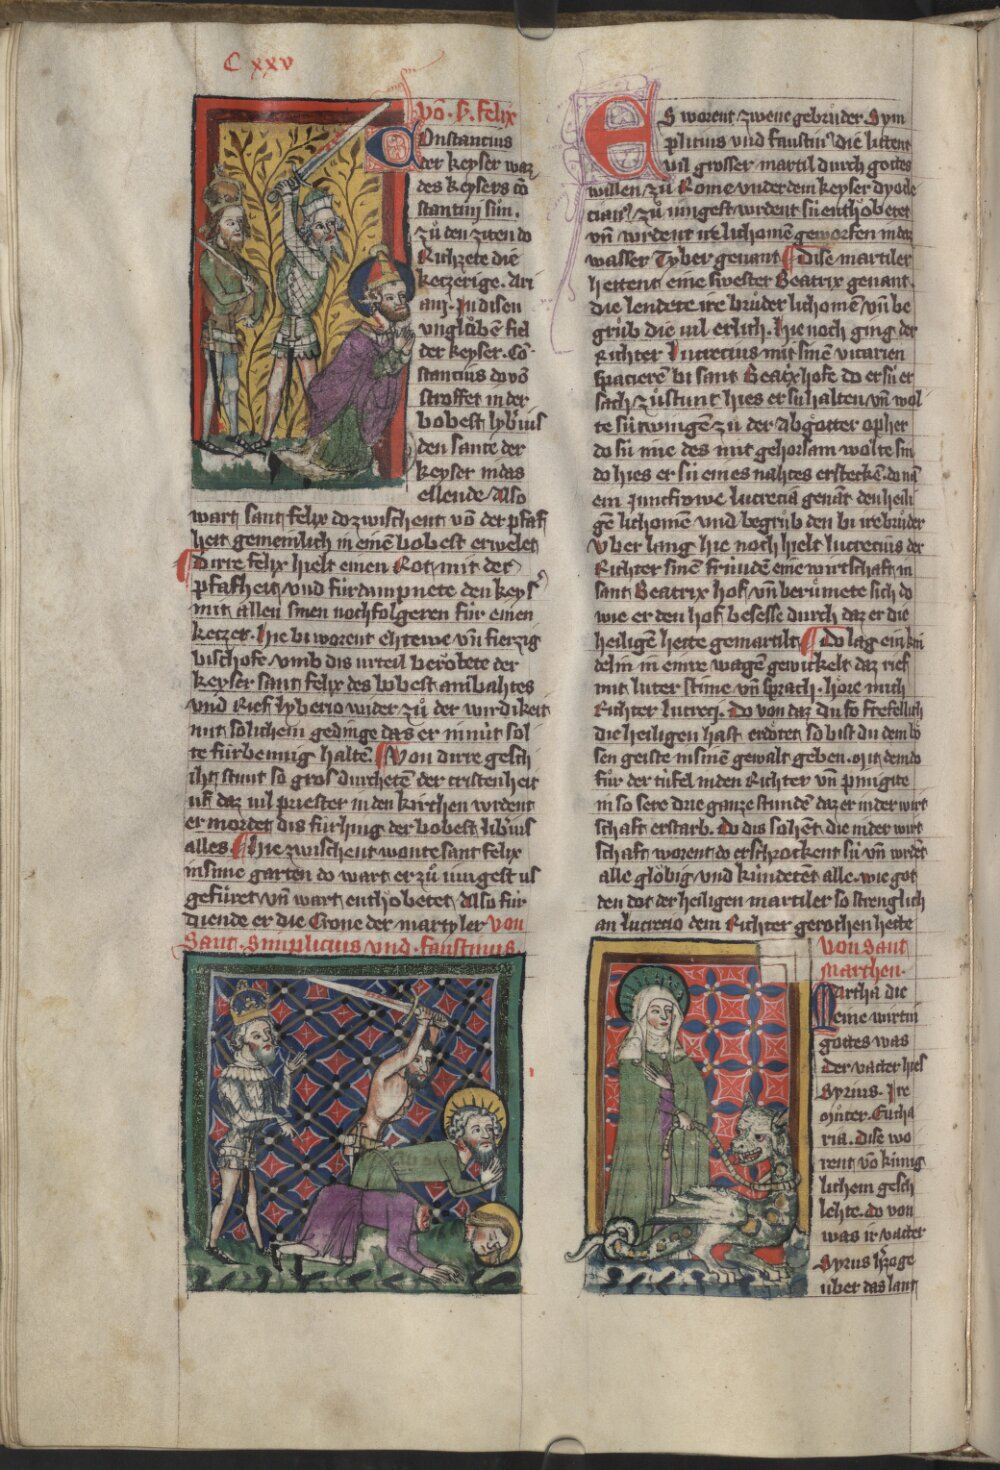 C xxv
Võ · S · felix
Constancius
der keyser waz
des keysers cõ
stantinj sůn.
zů den ziten do
Richzete die
ketzerige · Ari
anj · In disen
vnglöbẽ fiel
der keyser · Cõ
stancius do võ
stroffet in der
bobest lyb'ius
den sante der
keyser in das
ellende · Also
wart sant felix do zwischent võ der pfaf
heit gemeinlich in einẽ bobest erwelet
Dirre felix hielt einen Rot mit der
pfafheit vnd fürdampnete den keys'
mit allen sinen nochfolgeren für einen
ketzer · hie bi worent ehtewe vñ fierzig
bischofe vmb dis urteil berobete der
keyser sant felix des bobest ambahtes
vnd Rief lyberio wider zů der wirdikeit
mit solichem gedinge das er in nüt sol
te fürbennig halte. Von dirre gesch
iht stunt so gros durchetẽ der cristenheit
uf daz vil priester in den kirchen wrdent
er mordet dis fürhing der bobest lib'ius
alles. hie zwischent wonte sant felix
in sime garten do wart er zů iungest us
gefüret vñ wart enthobetet Also für
diende er die Crone der martyler von
Sant · Simplicius vnd · faustinus.
ES worent zwene gebrůder Sym
plicius vnd faustin' die littent
vil grosser martil durch gottes
willen zů Rome vnder dem keyser dyocle
cian' zů iungest wrdent sü enthöbetet
vñ wrdent ire lichomẽ geworfen in daz
wasser Tyber genant Dise martiler
hettent eine swester Beatrix genant.
die lendete ire brůder lichomẽ vñ be
grůb die vil erlich. Hie noch ging der
Richter lucrecius mit sinẽ vicarien
spacierẽ bi sant Beatx hofe do er sü er
sach zůstunt hies er sü halten vñ wol
te sü twingẽ zů der abgötter opher
do sü nie des mit gehorsam wolte sin
do hies er sü eines nahtes ersteckẽ do nã
ein juncfrowe lucrecia genãt den heili
gẽ lichomẽ vnd begrůb den bi ire brůder
Vber lang hie noch hielt lucrecius der
Richter sinẽ fründẽ eine wirtschaft in
sant Beatrix hof vñ berůmete sich do
wie er den hof besesse durch daz er die
heiligẽ hette gemartilt Do lag ein kin
delin in eime wagẽ gewickelt daz rief
mit luter stime vñ sprach · höre mich
Richter lucreci. Do von daz du so frefellich
die heiligen hast erdötet so bist du dem bö
sen geiste in sinẽ gewalt geben · mit dem do
für der tüfel in den Richter vñ pinigite
in so sere drie ganze stundẽ daz er in der wirt
schaft erstarb. do dis sohẽt die in der wirt
schaft worent do erschrockent sü vñ wrdẽt
alle glöbig vnd kündetẽt alle · wie got
den dot der heiligen martiler so strenglich
an lucrecio dem Richter gerochen hette
von sant
marthen.
Martha die
eine wirtin
gottes was
der vatter hies
Syrius · Ire
můter · Eucha
ria · dise wo
rent võ künig
lichem gesch
lehte · do von
was ir vatter
Syrus h'zoge
über das lant